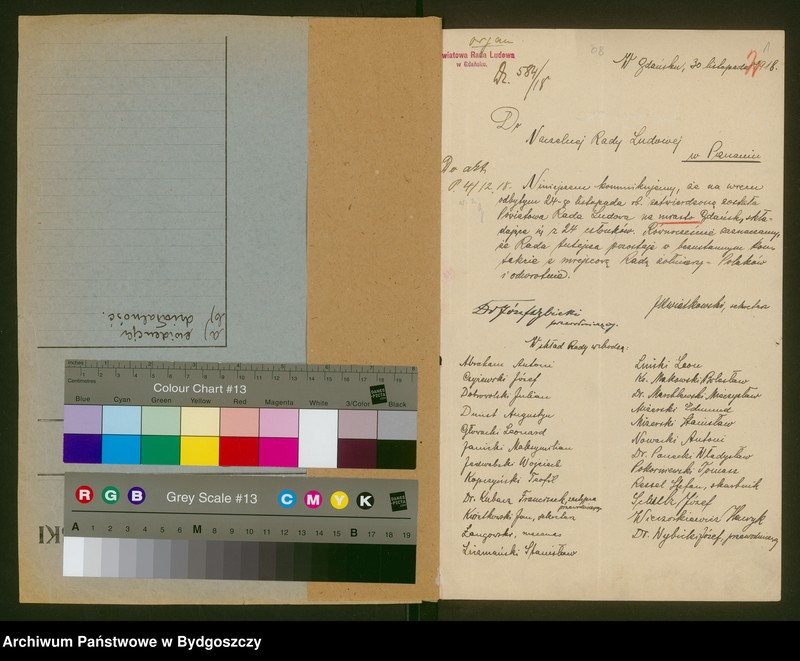 a) ewidencja
b) działalność.
Inches
Centimetres
Colour Chart #13
Blue Cyan Green Yellow Red Magenta White 3/Color Black
R G B Grey Scale #13 C M Y K
A 1 2 3 4 5 6 M 8 9 10 11 12 13 14 15 B 17 18 19
organ
wiatowa Rada Ludowa
w Gdańsku.
584/18
W Gdańsku, 30 listopada 1918.
Do
Naczelnej Rady Ludowej
w Poznaniu
Do akt
P. 4/12. 18.
Niniejszem komunikujemy, że na wiecu
odbytym 24-go listopada rb. zatwierdzoną została
Powiatowa Rada Ludowa na miasto Gdańsk, skła-
dająca się z 24 członków. Równocześnie zaznaczamy,
że Rada tutejsza pozostaje w bezustannym kon-
takcie z miejscową Radą żołnierzy-Polaków
i odwrotnie.
Dr Józef Wybicki
przewodniczący.
JKwiatkowski, sekretarz
W skład Rady wchodzą:
Abraham Antoni
Czyżewski Józef
Dobrowolski Julian
Dunst Augustyn
Głowacki Leonard
Janicki Maksymilian
Jedwabski Wojciech
Kopczyński Teofil
Dr. Kubacz Franciszek, zastępca przewodniczącego
Kwiatkowski Jan, sekretarz
Langowski, mecenas
Stanisław
Liński Leon
Ks. Makowski Bolesław
Dr. Marchlewski Mieczysław
Mizerski Edmund
Mizerski Stanisław
Nowacki Antoni
Dr. Panecki Władysław
Pokorniewski Tomasz
Ressel Stefan, skarbnik
Józef
Wieczorkiewicz Henryk
Dr. Wybicki Józef, przewodniczący
Archiwum Państwowe w Bydgoszczy